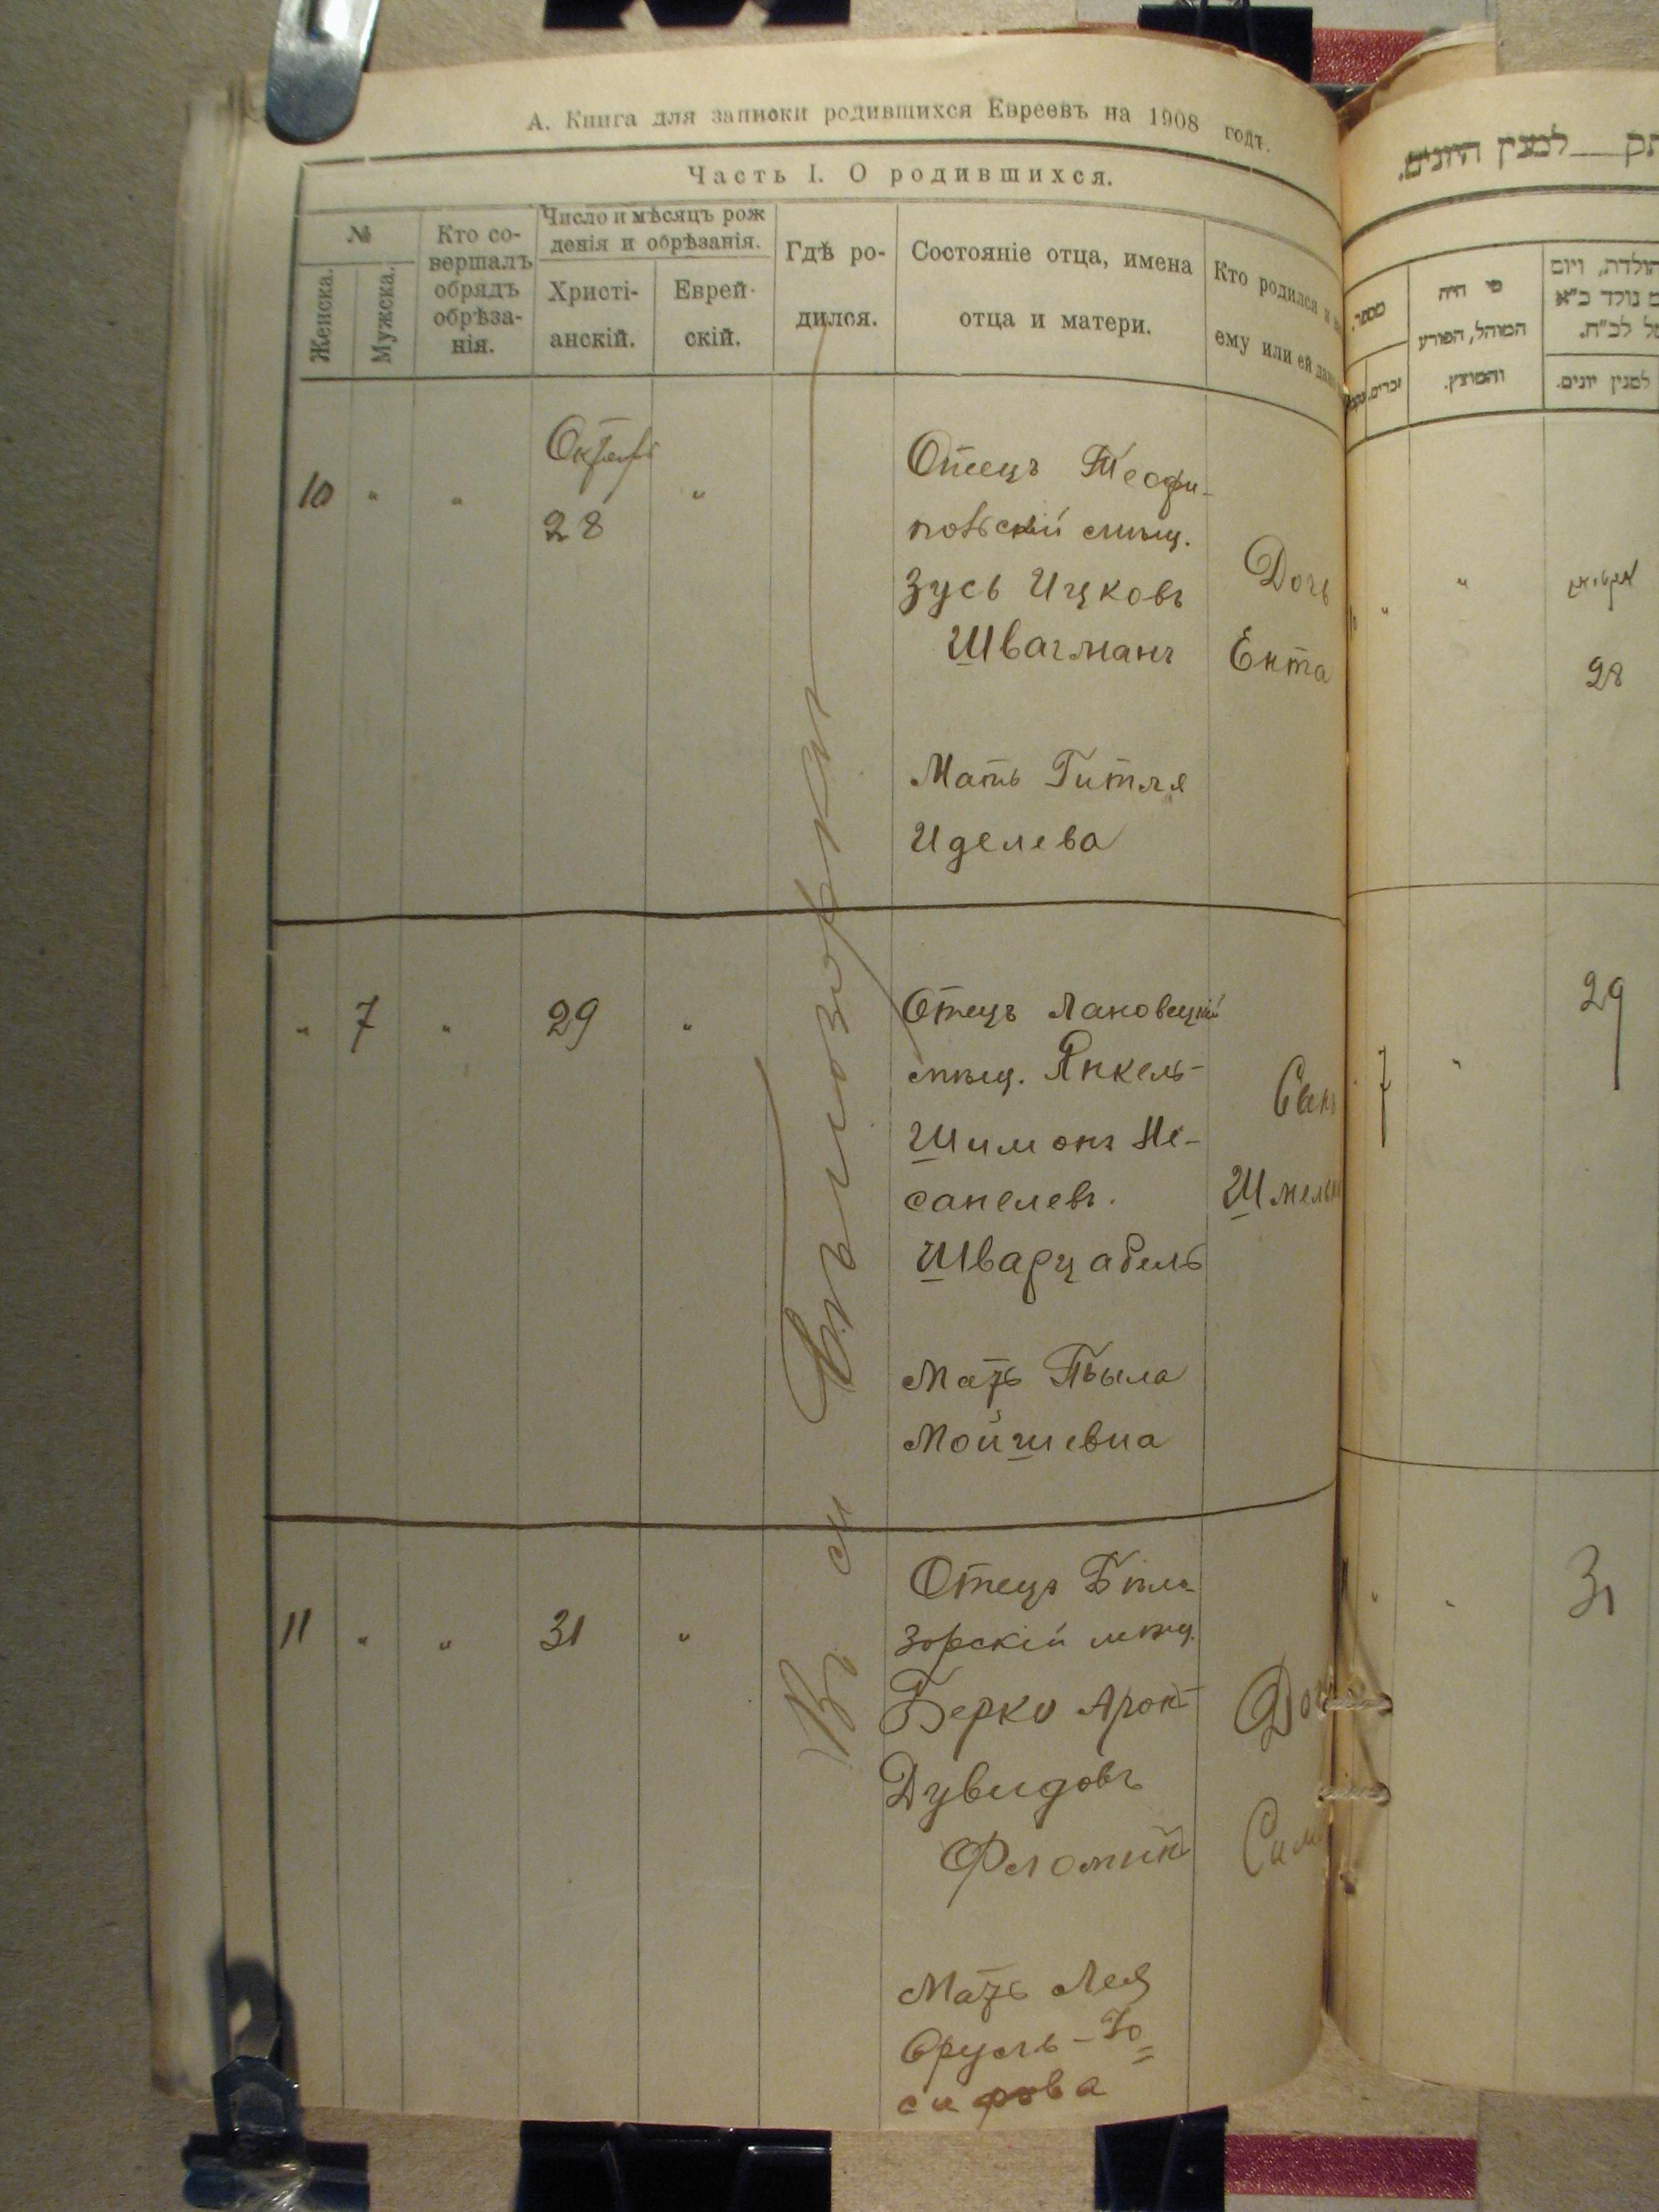 А. Книга для записки родившихся Евреевъ на 1908 годъ.
Часть I. О родившихся.
№
Женска.
Мужска.
Кто со-
вершалъ
обрядъ
обрѣза-
нія.
Число и мѣсяцъ рож
денія и обрѣзанія.
Христі-
анскій.
Еврей-
скій.
Гдѣ ро-
дился.
Состояніе отца, имена
отца и матери.
Кто родился и
ему или ей
10 " "
28
"
Отецъ Теофи-
польскій мѣщ.
Зусь Ицковъ
Швагманъ
Мать Гитля
Иделева
Дочь
Ента
" 7 " 29 "
Отецъ Лановецкій
мѣщ. Янкель-
Шимонъ Не-
санелевъ.
Шварцабель
Мать
Мойшевна
Сынъ
Въ м Бѣлозоркѣ
11 " " 31 "
Отецъ Бѣло-
зорскій мѣщ.
Берко Арон-
Дувидовъ
Мать Лея
Сруль-Іо
сифова
תק___למנין היונים.
מספר.
זכרים.
מי היה
המוהל, הפורע
והמוצץ.
הולדת, ויום
נולד כ"א
לכ"ח.
למנין יונים.
" "
28
7 " 29
" " 31